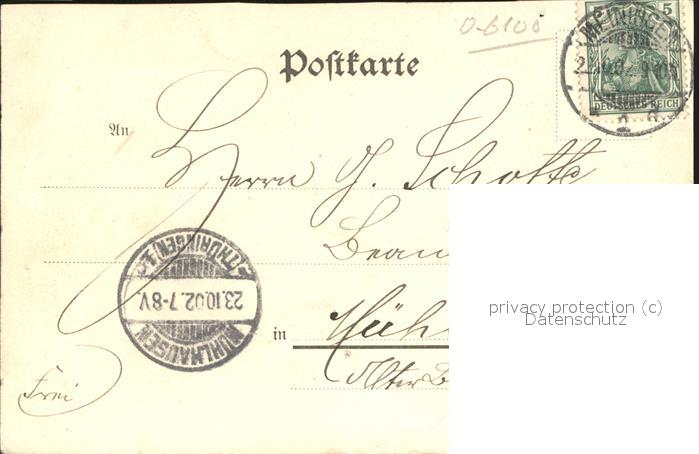 O-6100
5 5
MEININGEN
DEUTSCHES REICH
2 a
Postkarte
An
Herrn G. Schotte
Beam
MÜHLHAUSEN
23.10.02.7-8V.
(THÜRINGEN) 1
in
Mühl
Alter B
Frei
privacy protection (c)
Datenschutz